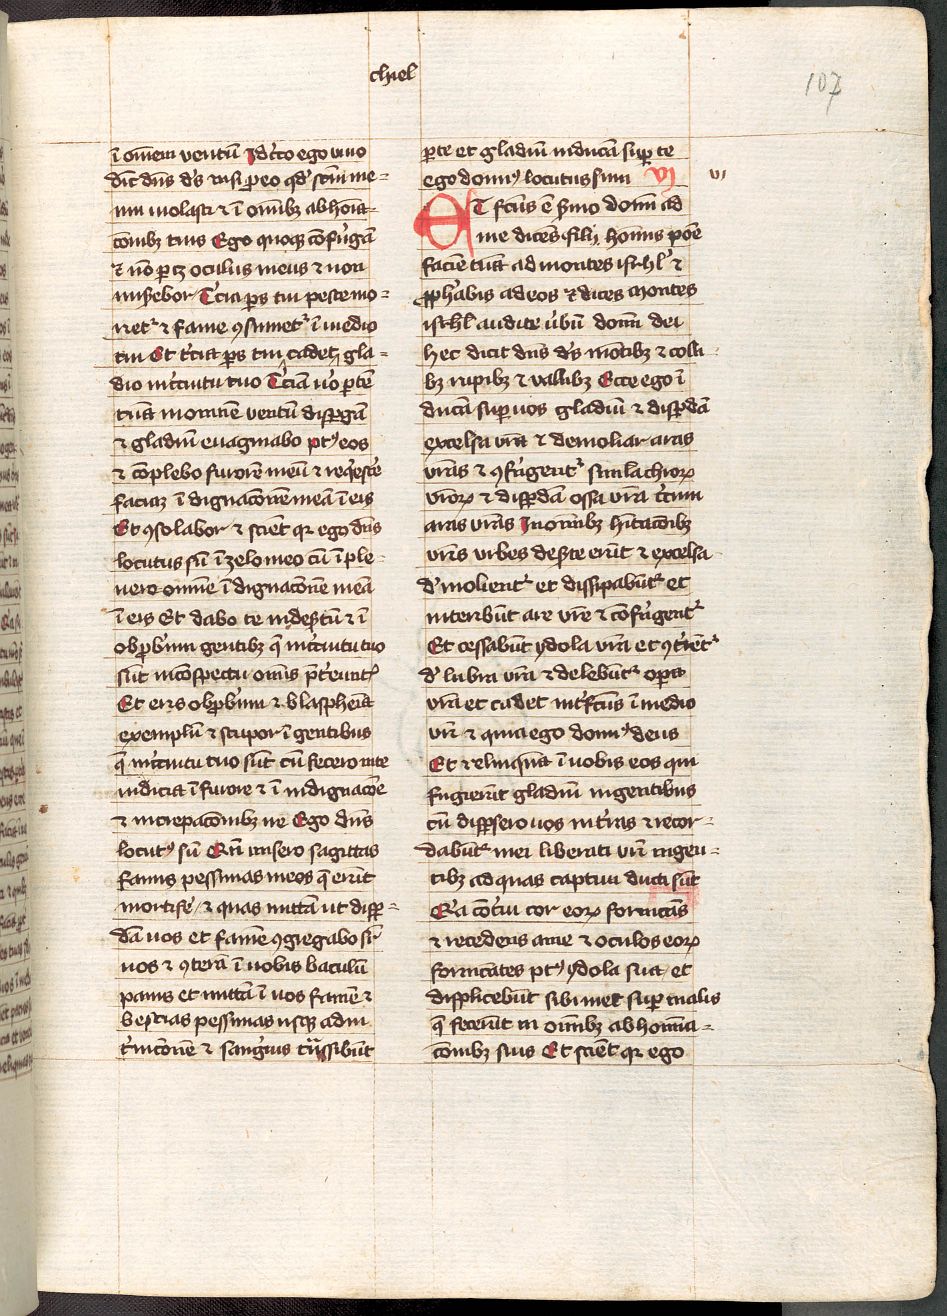 chiel
107
ī om̄em ventū Idcirco ego vivo
dīt dn̄s d's nisi p eo qd' sēm me-
um violasti et ī om̄ibꝫ abhoīa-
cōnibꝫ tuis Ego quoqꝫ cōfrīgam
et nō parcꝫ oculus meus et non
miserebor Tercia ps tui peste mo-
riet᷑ et fame ꝯsumet᷑ ī medio
tui Et tercia ps tui cadet gla-
dio in circuitu tuo Terciam vō ptē
tuā in om̄ē ventū dispgā
et gladiū evaginabo pt' eos
et complebo furorē meū et reqescē
faciā ī dignacōnē meā ī eis
Et ꝯsolabor et sciēt qꝛ ego dn̄s
locutus sū ī zelo meo cū īple-
vero om̄em ī dignacōnē meā
ī eis Et dabo te in desertū et ī
obprobriū gentibꝫ q̄ in circuitu tuo
sūt in cōspectu om̄is pretereuntis
Et eris obprobriū et blasphemia
exemplū et stupor ī gentibus
q̄ in circuitu tuo sūt cū fecero in te
iudicia ī furore et ī indignacōe
et increpacōnibꝫ ire Ego dn̄s
locut' sū Qn̄ misero sagittas
famis pessimas in eos q̄ erūt
mortife et quas mittā ut disper-
dā vos et famē ꝯgregabo sr̄
vos et ꝯterā ī vobis baculū
panis et mittā ī vos famē et
bestias pessimas usqꝫ ad in
t'nicōnē et sanguis trāssibunt
p te et gladiū inducā sup te
ego domin' locutus sum VI
VI
ET factus ē s'mo domī ad
me dicēs fili homīs pōe
faciē tuā ad montes isrl' et
ꝓph'abis ad eos et dices montes
isrl' audite v'bū domī dei
hec dicit dn̄s d's mōtibꝫ et colli-
bꝫ rupibꝫ et vallibꝫ Ecce ego ī
ducā sup vos gladiū et dispdā
excelsa vr̄a et demoliar aras
vrās et ꝯfrīgent᷑ simlachꝛoꝝ
vr̄oꝝ et dispdā ossa vr̄a circum
aras vrās In om̄ibꝫ h'itacōibꝫ
vr̄is urbes des'te erūt et excelsa
d'molient᷑ et dissipabūt᷑ et
interibūt are vr̄e et cōfrīgent᷑
Et cessabūt ydola vr̄a et ꝯterēt᷑
d'lubra vr̄a et delebūt᷑ opa
vr̄a et cadet int'fectus ī medio
vr̄i et quia ego domin' deus
Et relinquā ī vobis eos qui
fugierīt gladiū in gentibus
cū dispsero vos in t'ris et recor-
dabūt᷑ mei liberati vr̄i in gen-
tibꝫ ad quas captivi ducti sūt
Q'a cōt'vi cor eoꝝ fornicās
et recedens a me et oculos eoꝝ
fornicātes pt' ydola sua et
displicebūt sibimet sup malis
q̄ fecerūt in om̄ibꝫ abhomīa-
cōnibꝫ suis Et sciēt qꝛ ego